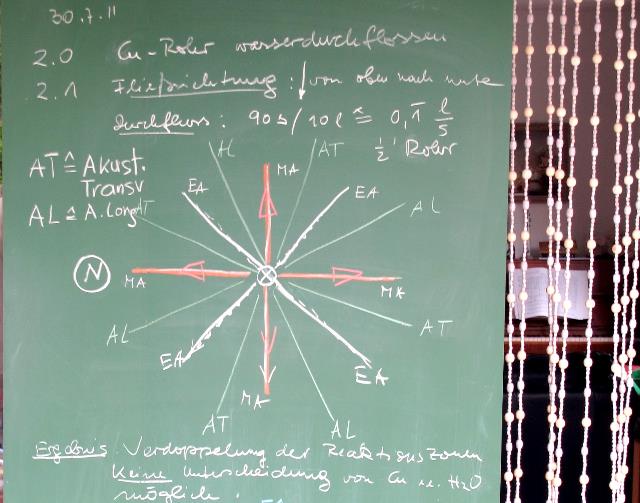 30.7.11
2.0 Cu-Rohr wasserdurchflossen
2.1 Fließrichtung: ↓ von oben nach unten
Durchfluss: 90 s/10 l ≙ 0,1̄ l/s
½' Rohr
AT ≙ Akust. Transv
AL ≙ A. Long
AL
MA
AT
EA
EA
AT
AL
N
MA
MA
AL
AT
EA
EA
MA
AT
AL
Ergebnis: Verdoppelung der Reaktionszonen
Keine Unterscheidung von Cu u. H2O
möglich.